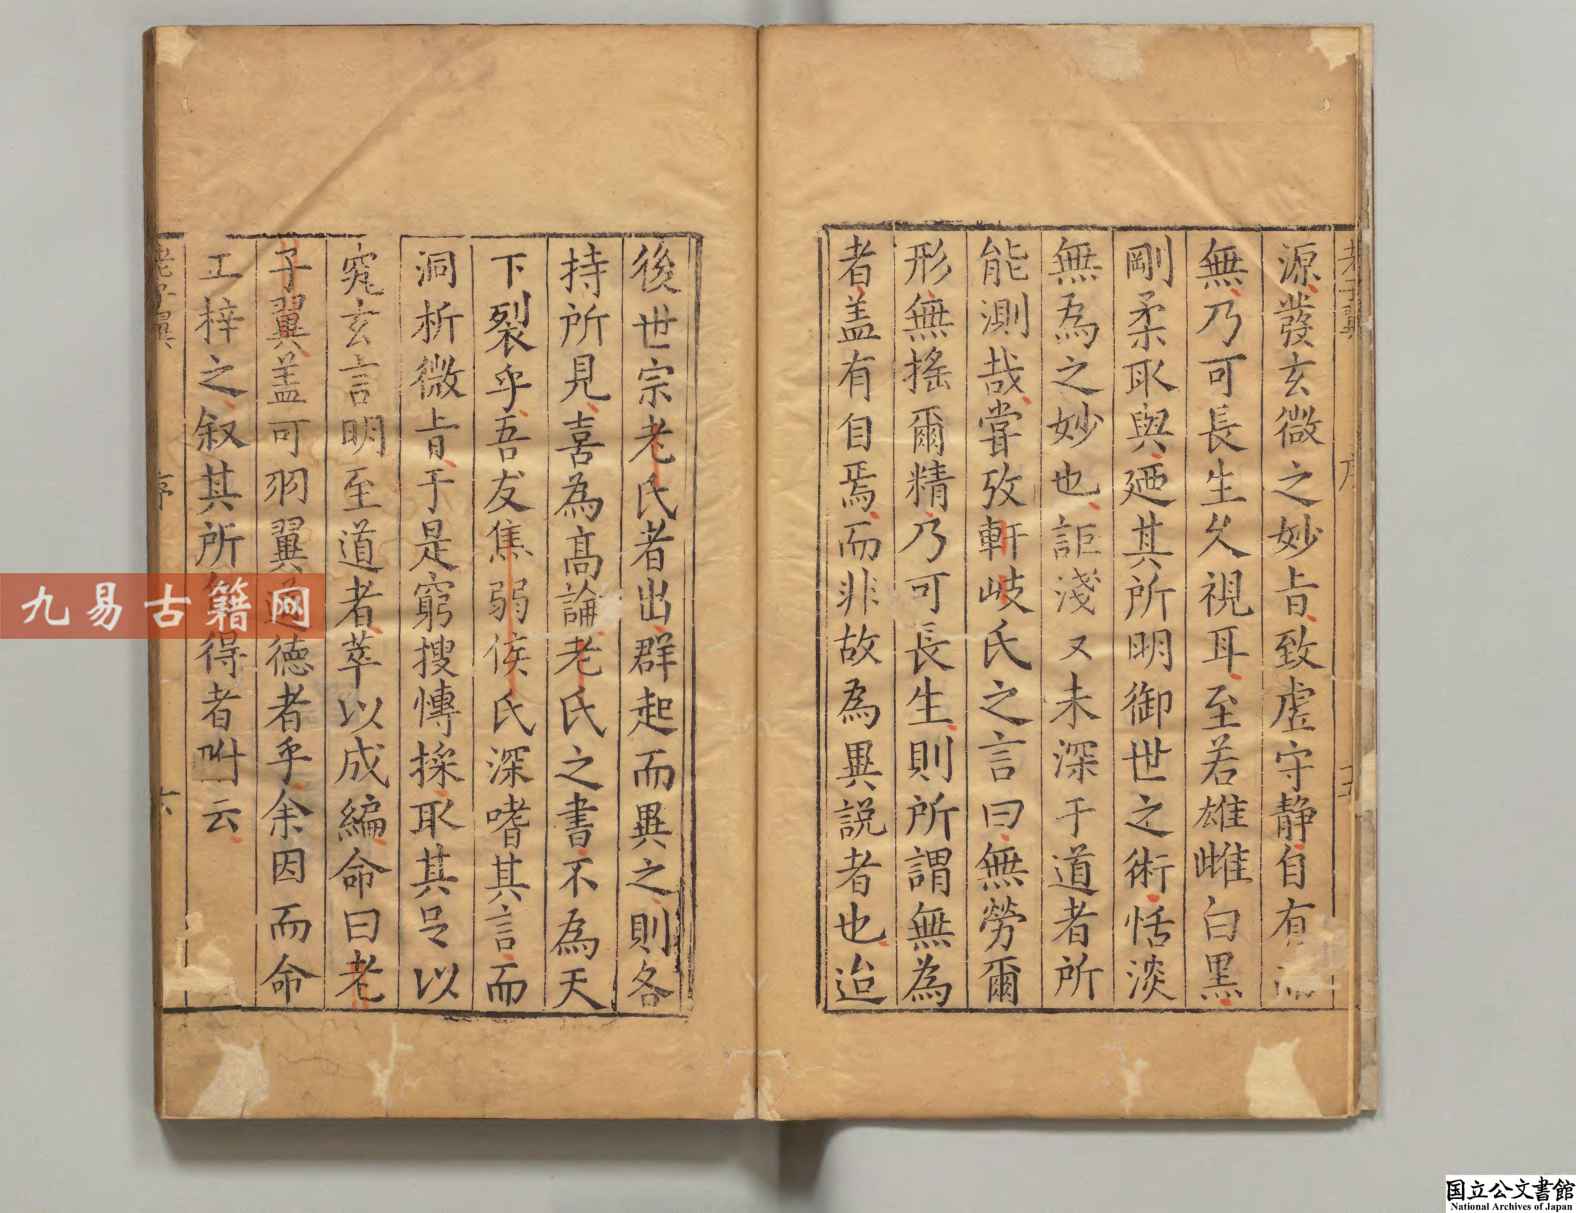 老子翼
序
五
源發玄微之妙旨致虛守靜自有
無乃可長生久視耳至若雄雌白黑
剛柔取與廼其所明御世之術恬淡
無為之妙也詎淺又未深于道者所
能測哉嘗攷軒岐氏之言曰無勞爾
形無搖爾精乃可長生則所謂無為
者盖有自焉而非故為異說者也迨
後世宗老氏者出群起而異之則各
持所見喜為高論老氏之書不為天
下裂乎吾友焦弱侯氏深嗜其言而
洞析微旨于是窮搜慱採取其足以
窺玄言明至道者萃以成編命曰老
子翼盖可羽翼道德者乎余因而命
工梓之叙其所得者附云
老子翼
序
六
九易古籍网
国立公文書館
National Archives of Japan